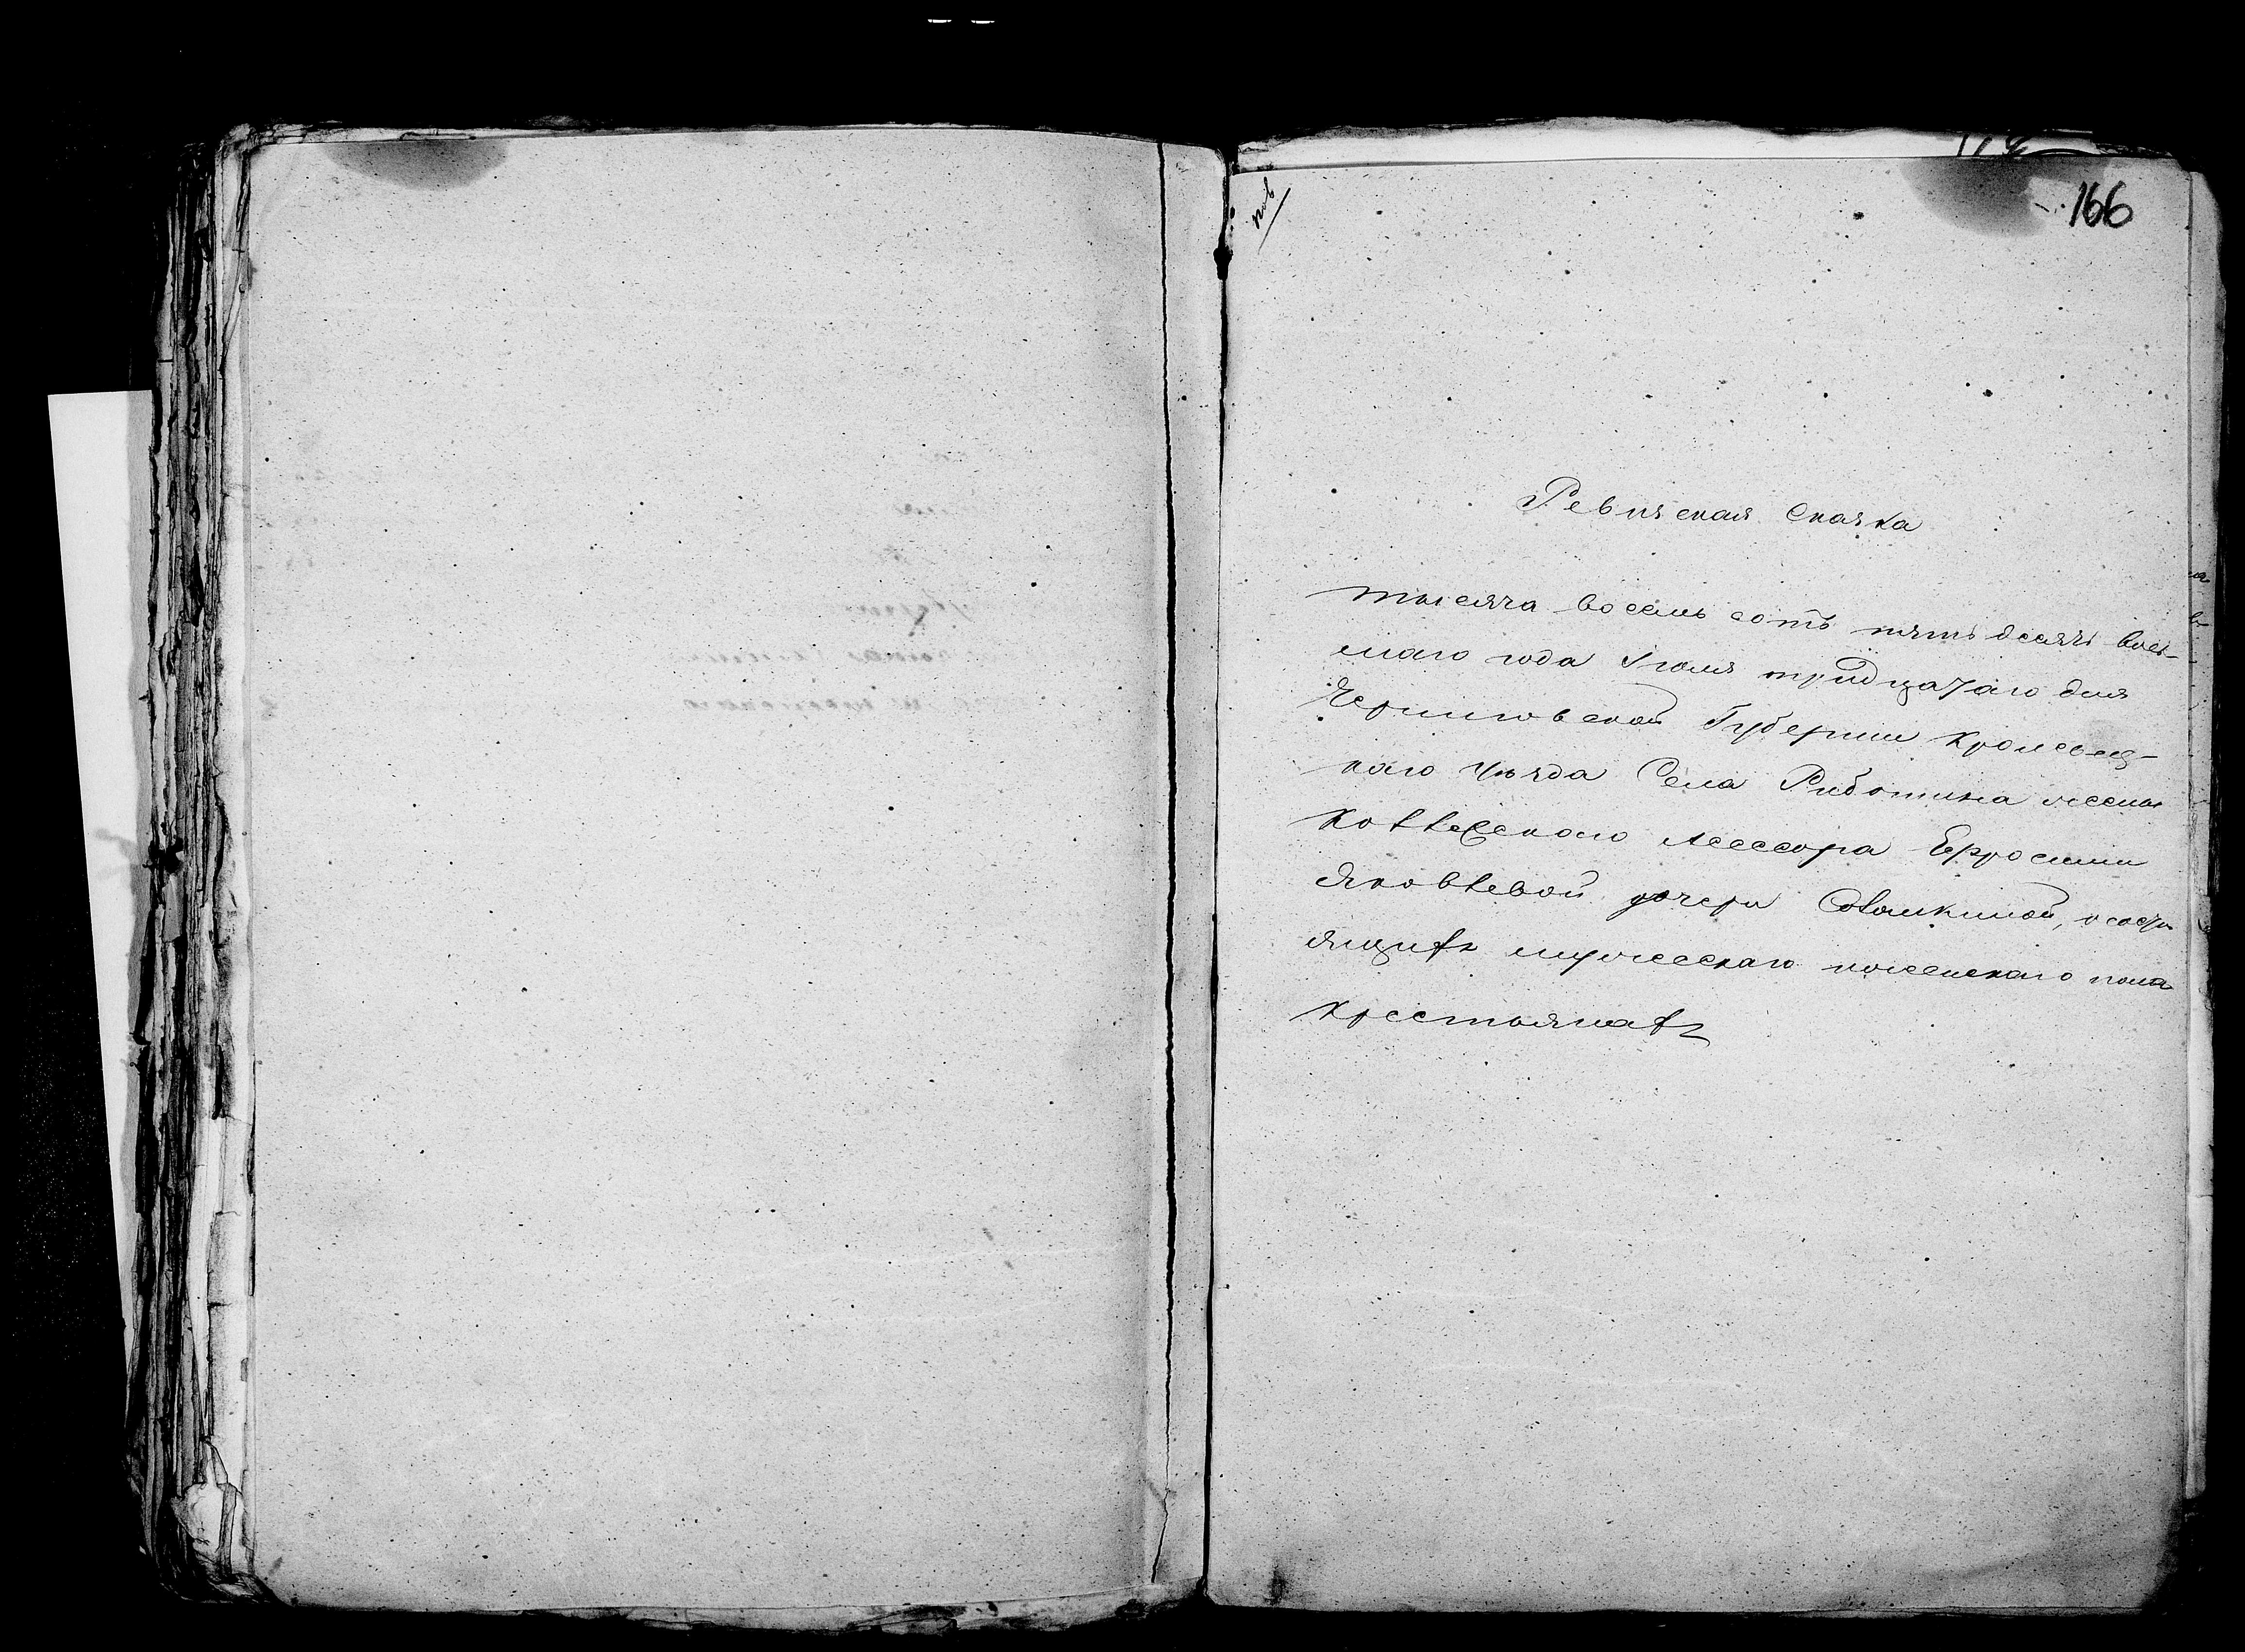 166
Ревизская Сказка
тысяча восемь сотъ пятьдесятъ вось-
маго года Июля тридцатаго дня
Черниговской Губернии Кролевец-
каго уѣзда Села Риботина жены
Коллежскаго Асессора Ефросини
Яковлевой дочери о состо
ящихъ мужескаго и женскаго пола
крестьянахъ